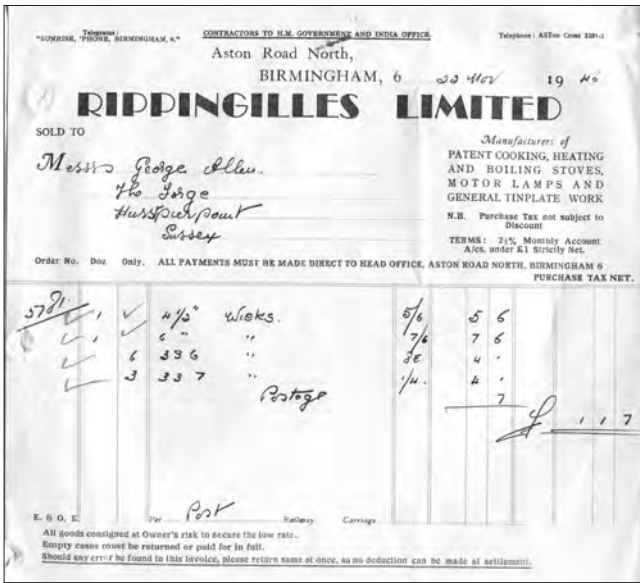 Telegrams:
"SUNRISE, 'PHONE, BIRMINGHAM, 6."
CONTRACTORS TO H.M. GOVERNMENT AND INDIA OFFICE.
Telephone: ASTon Cross 3201-2
Aston Road North,
BIRMINGHAM, 6 22 Nov 19 40
RIPPINGILLES LIMITED
SOLD TO
Messrs George Allen.
The Forge
Hurstpierpoint
Sussex
Manufacturers of
PATENT COOKING, HEATING
AND BOILING STOVES,
MOTOR LAMPS AND
GENERAL TINPLATE WORK
N.B. Purchase Tax not subject to
Discount
TERMS: 2½% Monthly Account
A/cs. under £1 Strictly Net.
Order No. Doz Only. ALL PAYMENTS MUST BE MADE DIRECT TO HEAD OFFICE, ASTON ROAD NORTH, BIRMINGHAM 6
PURCHASE TAX NET.
5781 1 4½" Wicks. 5/6 5 6
1 6" " 7/6 7 6
6 336 " 8E 4 .
3 337 " 1/4. 4 .
Postage 7
£ 1 1 7
E. & O. E. Per Post Railway Carriage
All goods consigned at Owner's risk to secure the low rate.
Empty cases must be returned or paid for in full.
Should any error be found in this invoice, please return same at once, as no deduction can be made at settlement.